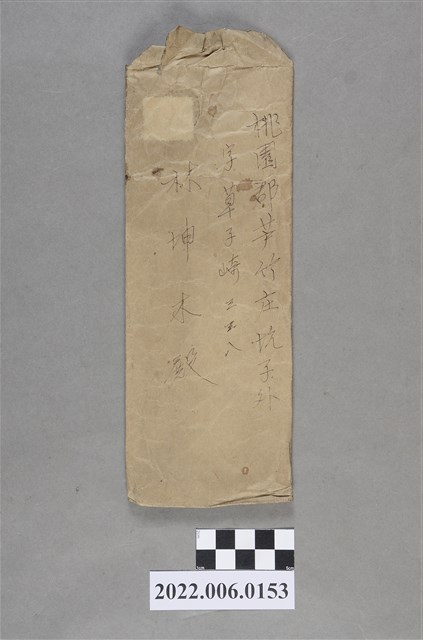 桃園郡芦竹庄坑子外
字草子崎三五八
林坤木殿
2022.006.0153